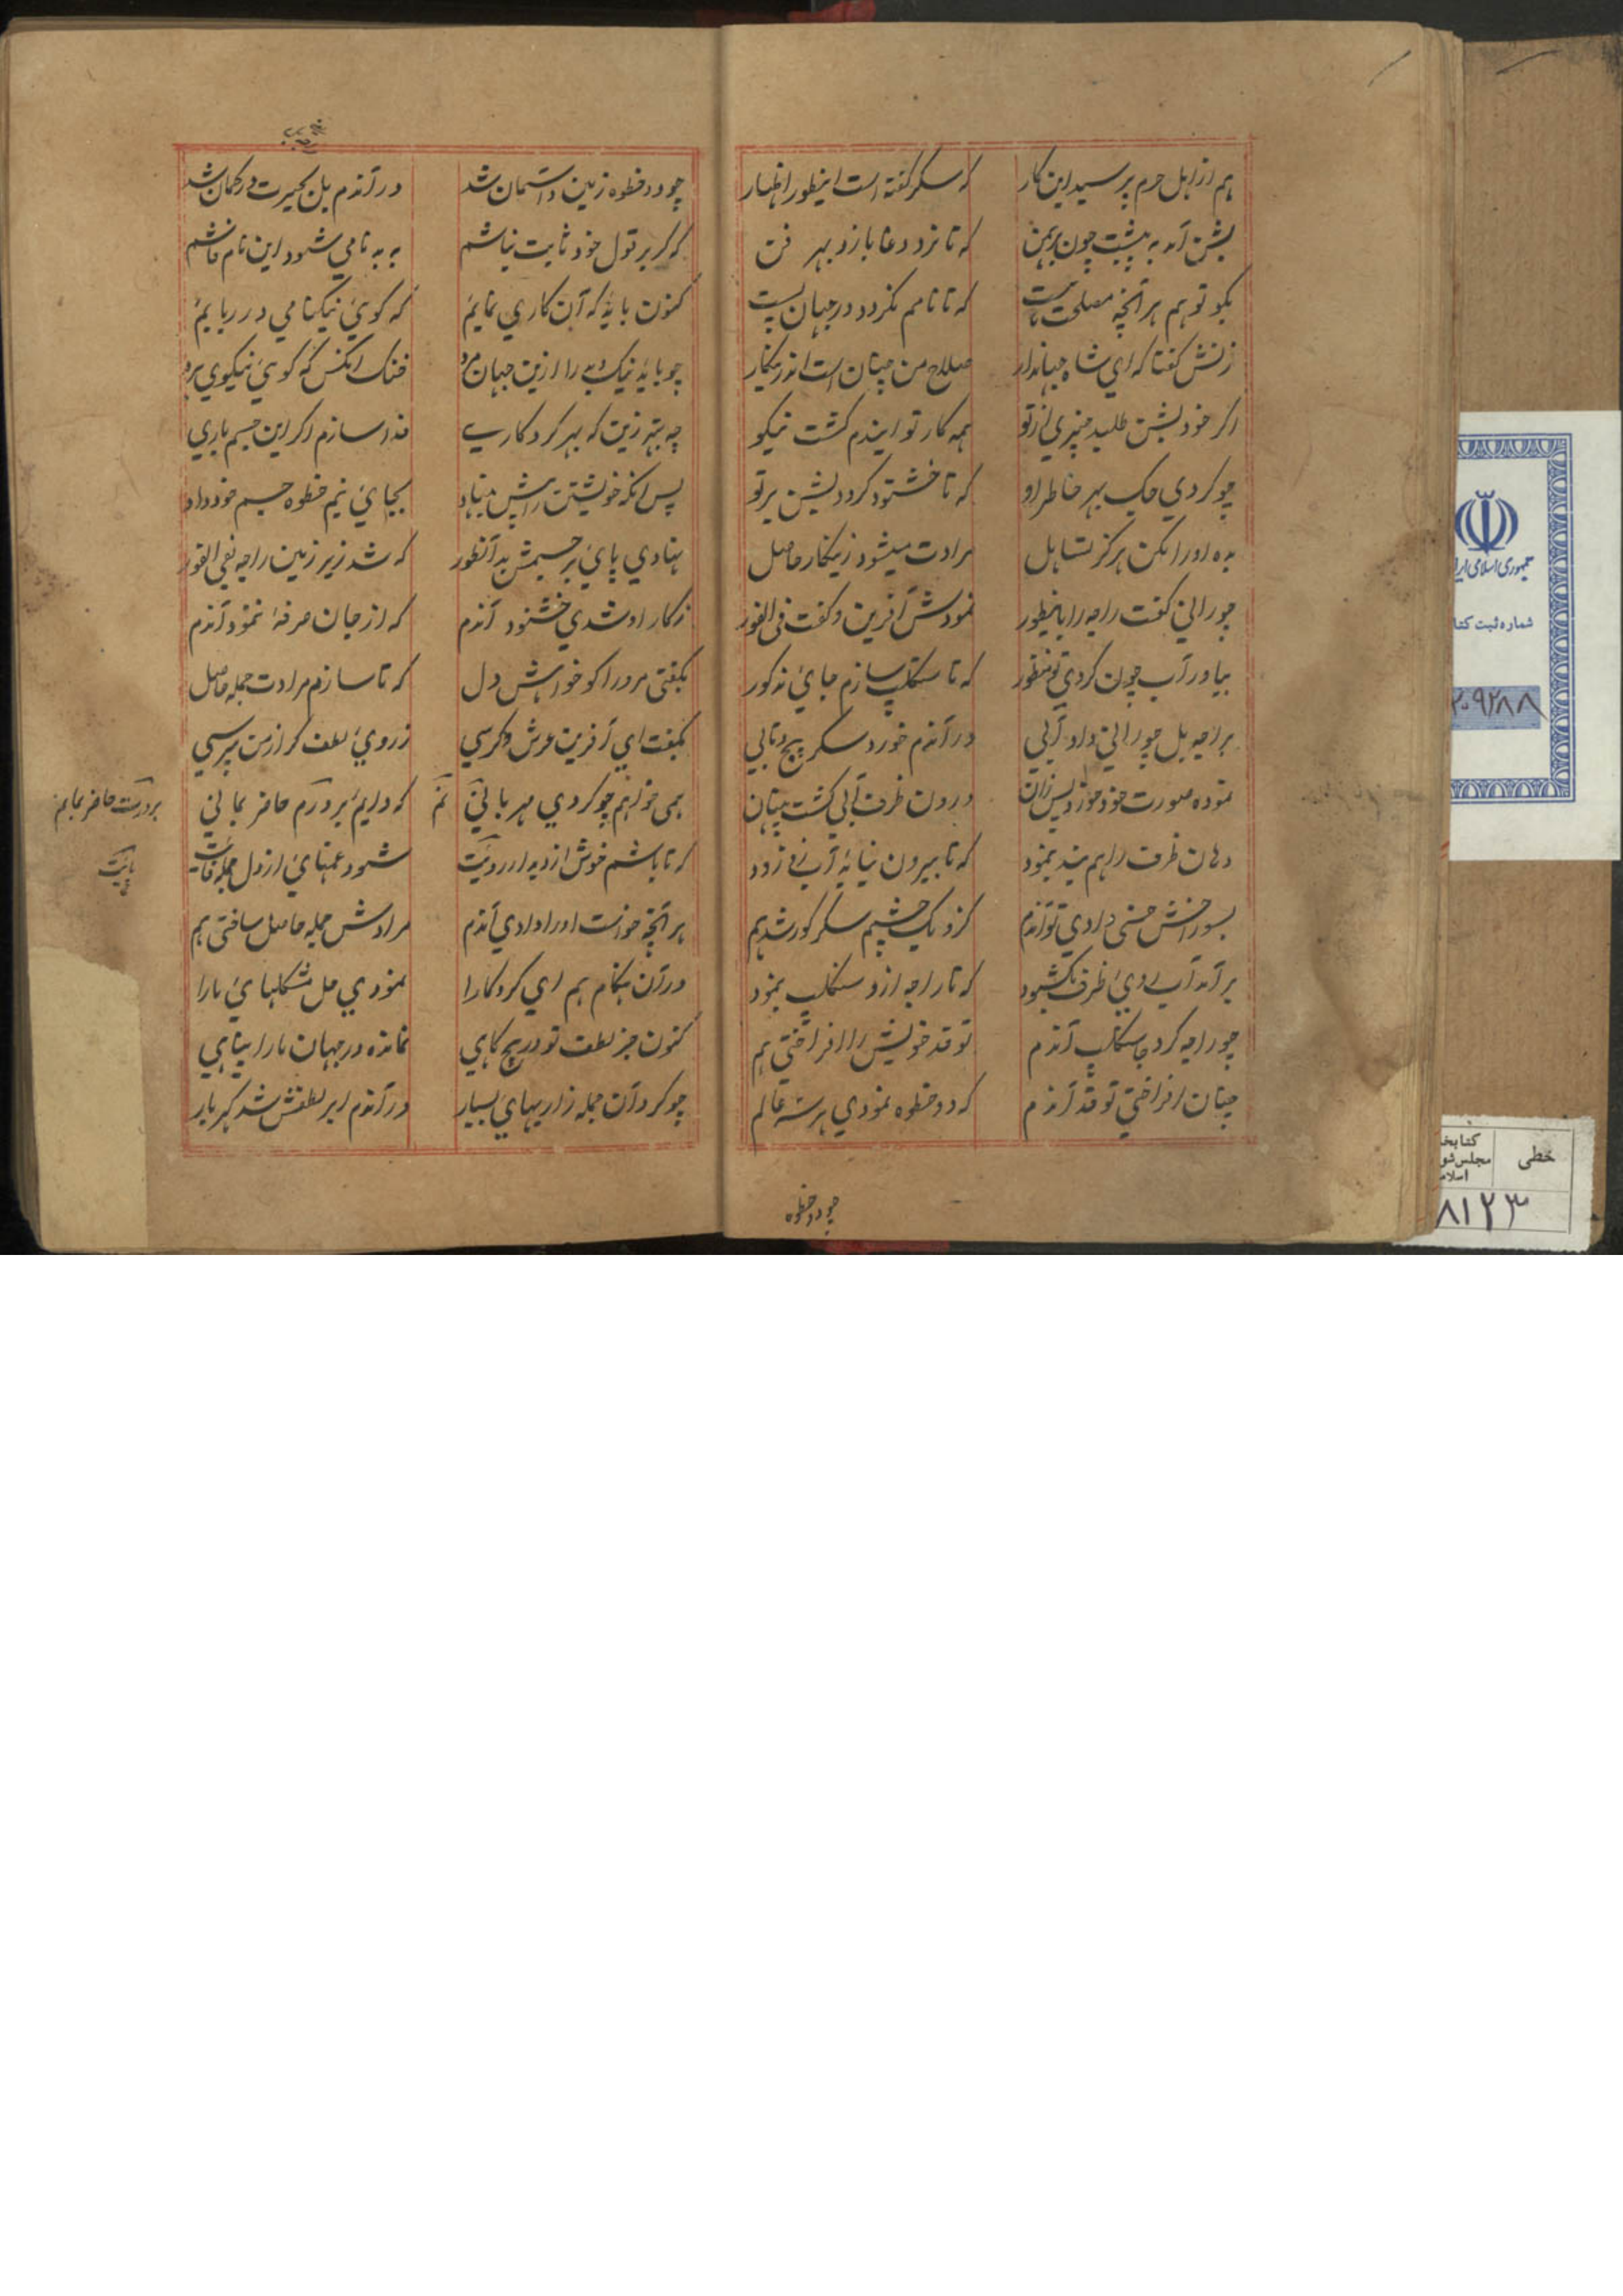 هم از اهل حرم پرسید این کار که سکر گفته است اینطور اظهار
بشن آمد به پیشت چون برهمن که تا نزد دغا بازد بهر فن
بکو تو هم هر آنچه مصلحت که تا نامم نکردد در جهان پست
زنش کفتا که ای شاه جهاندار صلاح من چنان است اندرینکار
اکر خود بشن طلبد چیزی از تو همه کار تو ایندم کشت نیکو
چو کردی جک بهر خاطر او که تا خشنود کردد بشن بر تو
بده او را مکن هرکز تساهل مرادت میشود زینکار حاصل
چو رانی کفت راجه را باینطور نمودش آفرین و کفت فی الفور
بیاور آب چون کردی تو منظور که تا سنکلپ سازم جای مذکور
براجه بل چو رانی داد آبی در آندم خورد سکر پیچ و تابی
نموده صورت خود خورد پس زان درون ظرف آبی کشت پنهان
دهان ظرف را هم بند بنمود که تا بیرون نیاید آب زود
بسوراخش خسی دادی تو آندم کزو یک چشم سکر کور شد هم
برآمد آب ظرف بکشود که تا راجه ازو سنکلپ بنمود
چو راجه کرد جا سنکلپ آندم تو قد خویش را افراختی هم
چنان افراختی تو قد آندم که دو خطوه نمودی هر سه عالم
چو دو خطوه
چو دو خطوه زمین و آسمان شد در آندم بل بحیرت در کمان شد
که کر بر قول خود ثابت نباشم به بدنامی شود این نام فاشم
کنون باید که آن کاری نمایم که کوی نیکنامی در ربایم
چو باید نیک و بد را ازین جهان مرد خنک آنکس که کوی نیکوی برد
چه بهتر زین که بهر کردکاری فدا سازم اکر این جسم باری
پس آنکه خویشتن را پیش بنهاد بجای نیم خطوه جسم خود داد
نهادی پای بر جسمش بدآنطور که شد زیر زمین راجه بفی الفور
ز کار او شدی خشنود آندم که از جان صرفه ننمود آندم
بکفتی مر ورا کو خواهش دل که تا سازم مرادت جمله حاصل
بکفت ای آفرین عرش و کرسی ز روی لطف کر از من بپرسی
همی خواهم چو کردی مهربانی که دایم بر درم حاضر بمانی
بر درت حاضر بمانم
که تا باشم خوش از دیدار رویت شود غمهای از دل جمله
هر آنچه خواست او را دادی آندم مرادش جمله حاصل ساختی هم
در آن هنکام هم ای کردکارا نمودی حل مشکلهای ما را
کنون جز لطف تو در هیچ کاهی نمانده در جهان ما را پناهی
چو کرد آن جمله زاریهای بسیار در آندم ابر لطفش شد کهربار
جمهوری اسلامی ایرا
شماره ثبت کتا
۲۰۹۲۸۸
خطی
کتابخا
مجلس شو
اسلام
۸۱۲۳